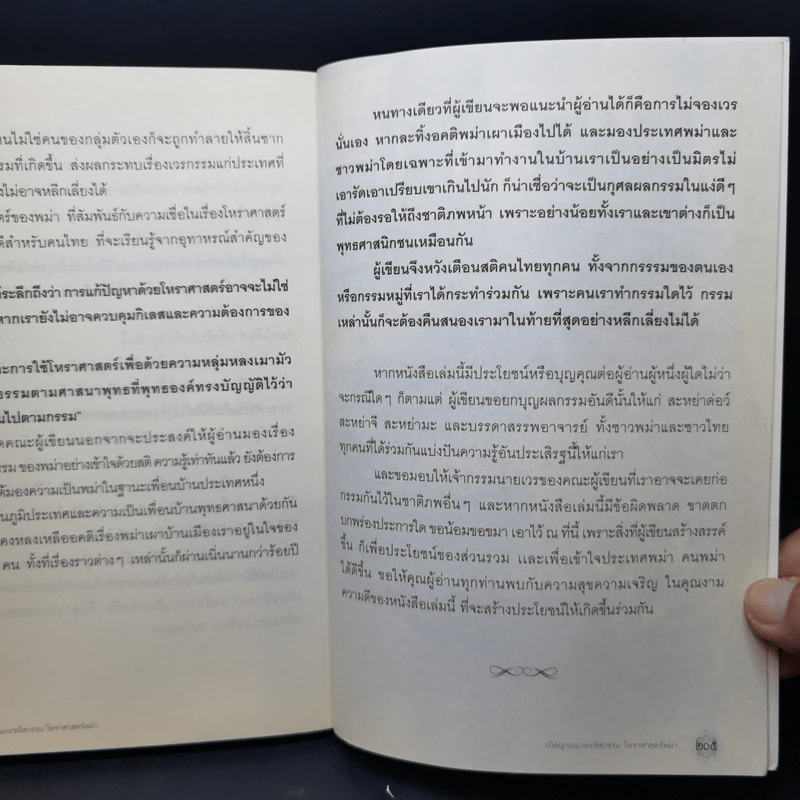 นไม่ใช่คนของกลุ่มตัวเองก็จะถูกทำลายให้สิ้นซาก
รมที่เกิดขึ้น ส่งผลกระทบเรื่องเวรกรรมแก่ประเทศที่
งไม่อาจหลีกเลี่ยงได้
ตร์ของพม่า ที่สัมพันธ์กับความเชื่อในเรื่องโหราศาสตร์
ดีสำหรับคนไทย ที่จะเรียนรู้จากอุทาหรณ์สำคัญของ
ระลึกถึงว่า การแก้ปัญหาด้วยโหราศาสตร์อาจจะไม่ใช่
หากเรายังไม่อาจควบคุมกิเลสและความต้องการของ
ะการใช้โหราศาสตร์เพื่อด้วยความหลุ่มหลงเมามัว
ธรรมตามศาสนาพุทธที่พุทธองค์ทรงบัญญัติไว้ว่า
นไปตามกรรม"
ดคณะผู้เขียนนอกจากจะประสงค์ให้ผู้อ่านมองเรื่อง
รรม ของพม่าอย่างเข้าใจด้วยสติ ความรู้เท่าทันแล้ว ยังต้องการ
ด้มองความเป็นพม่าในฐานะเพื่อนบ้านประเทศหนึ่ง
นภูมิประเทศและความเป็นเพื่อนบ้านพุทธศาสนาด้วยกัน
คงหลงเหลืออคติเรื่องพม่าเผาบ้านเมืองเราอยู่ในใจของ
คน ทั้งที่เรื่องราวต่างๆ เหล่านั้นก็ผ่านเนิ่นนานกว่าร้อยปี
โหราศาสตร์พม่า
หนทางเดียวที่ผู้เขียนจะพอแนะนำผู้อ่านได้ก็คือการไม่จองเวร
นั่นเอง หากละทิ้งอคติพม่าเผาเมืองไปได้ และมองประเทศพม่าและ
ชาวพม่าโดยเฉพาะที่เข้ามาทำงานในบ้านเราเป็นอย่างเป็นมิตรไม่
เอารัดเอาเปรียบเขาเกินไปนัก ก็น่าเชื่อว่าจะเป็นกุศลผลกรรมในแง่ดีๆ
ที่ไม่ต้องรอให้ถึงชาติภพหน้า เพราะอย่างน้อยทั้งเราและเขาต่างก็เป็น
พุทธศาสนิกชนเหมือนกัน
ผู้เขียนจึงหวังเตือนสติคนไทยทุกคน ทั้งจากกรรรมของตนเอง
หรือกรรมหมู่ที่เราได้กระทำร่วมกัน เพราะคนเราทำกรรมใดไว้ กรรม
เหล่านั้นก็จะต้องคืนสนองเรามาในท้ายที่สุดอย่างหลีกเลี่ยงไม่ได้
หากหนังสือเล่มนี้มีประโยชน์หรือบุญคุณต่อผู้อ่านผู้หนึ่งผู้ใดไม่ว่า
จะกรณีใดๆ ก็ตามแต่ ผู้เขียนขอยกบุญผลกรรมอันดีนั้นให้แก่ สะหย่าด่อว์
สะหย่าจี สะหย่ามะ และบรรดาสรรพอาจารย์ ทั้งชาวพม่าและชาวไทย
ทุกคนที่ได้ร่วมกันแบ่งปันความรู้อันประเสิรฐนี้ให้แก่เรา
และขอมอบให้เจ้ากรรมนายเวรของคณะผู้เขียนที่เราอาจจะเคยก่อ
กรรมกันไว้ในชาติภพอื่นๆ และหากหนังสือเล่มนี้มีข้อผิดพลาด ขาดตก
บกพร่องประการใด ขอน้อมขอขมา เอาไว้ ณ ที่นี้ เพราะสิ่งที่ผู้เขียนสร้างสรรค์
ขึ้น ก็เพื่อประโยชน์ของส่วนรวม และเพื่อเข้าใจประเทศพม่า คนพม่า
ได้ดีขึ้น ขอให้คุณผู้อ่านทุกท่านพบกับความสุขความเจริญ ในคุณงาม
ความดีของหนังสือเล่มนี้ ที่จะสร้างประโยชน์ให้เกิดขึ้นร่วมกัน
โหราศาสตร์พม่า ๒๐๕